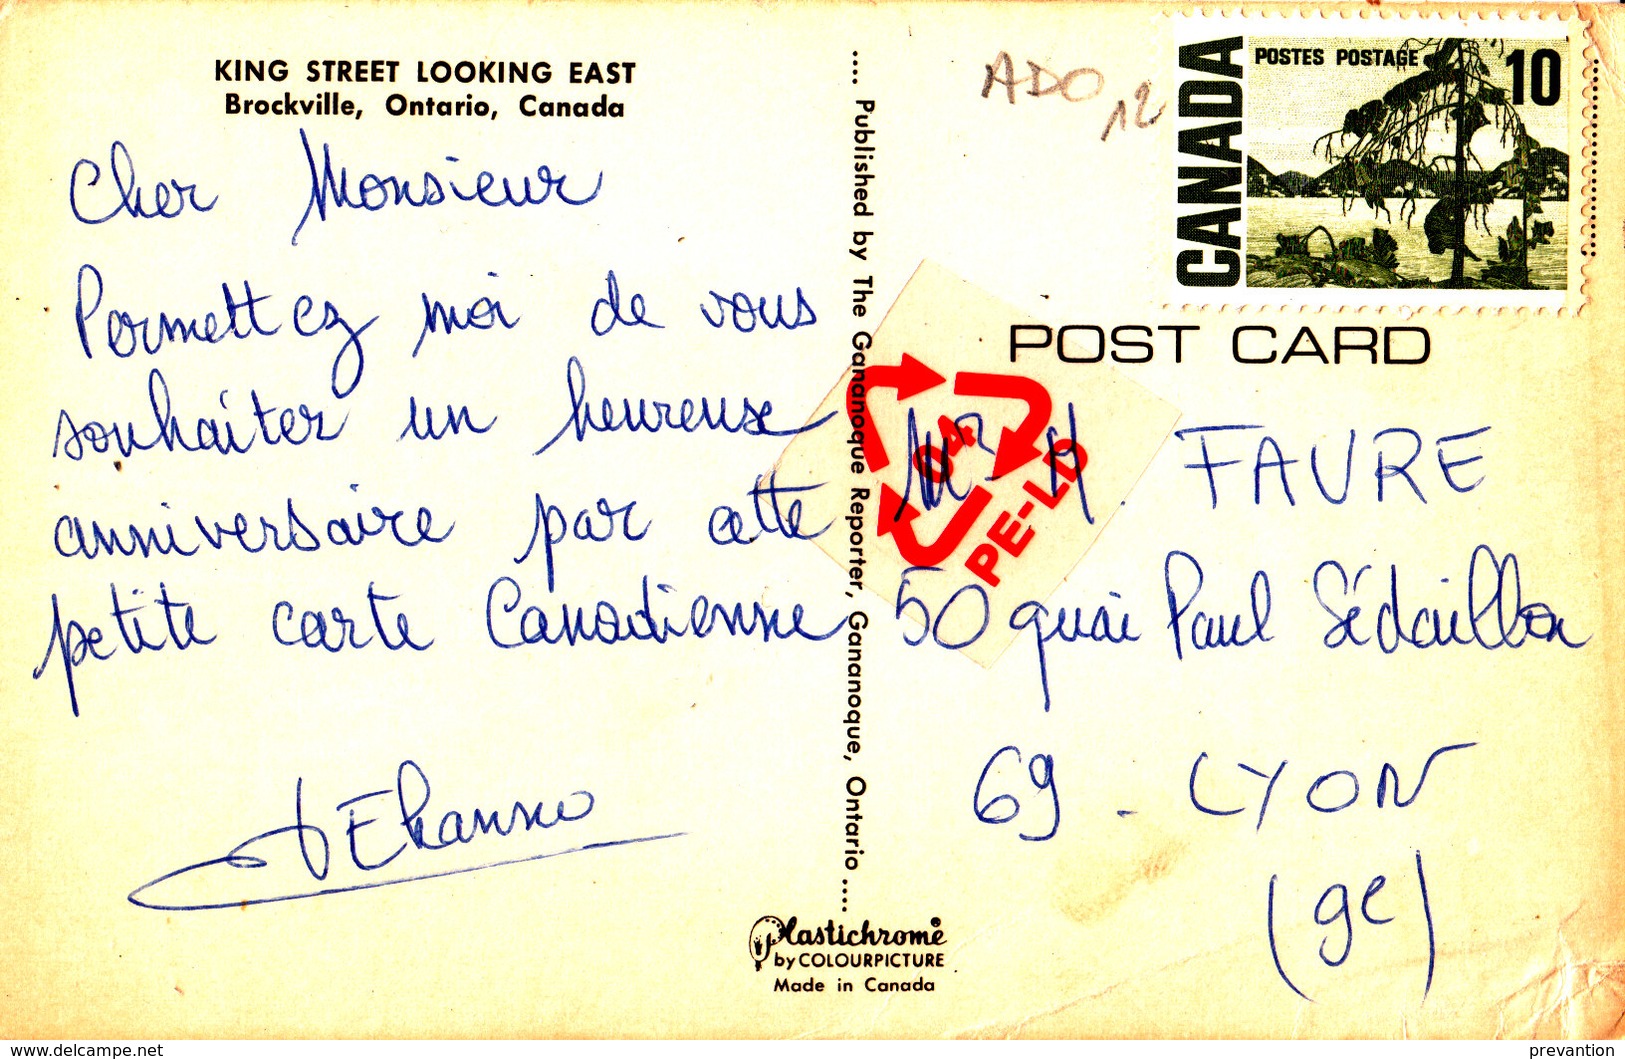 KING STREET LOOKING EAST
Brockville, Ontario, Canada
Cher Monsieur
Permettez moi de vous
souhaiter un heureuse
anniversaire par cette
petite carte Canadienne
.... Published by The Gananoque Reporter, Gananoque, Ontario ....
Plastichrome
by COLOURPICTURE
Made in Canada
ADO
12
CANADA
POSTES POSTAGE
10
POST CARD
04
PE-LD
Mr H. FAVRE
50 quai Paul Sédaillan
69 - LYON
(9e)
www.delcampe.net
prevantion